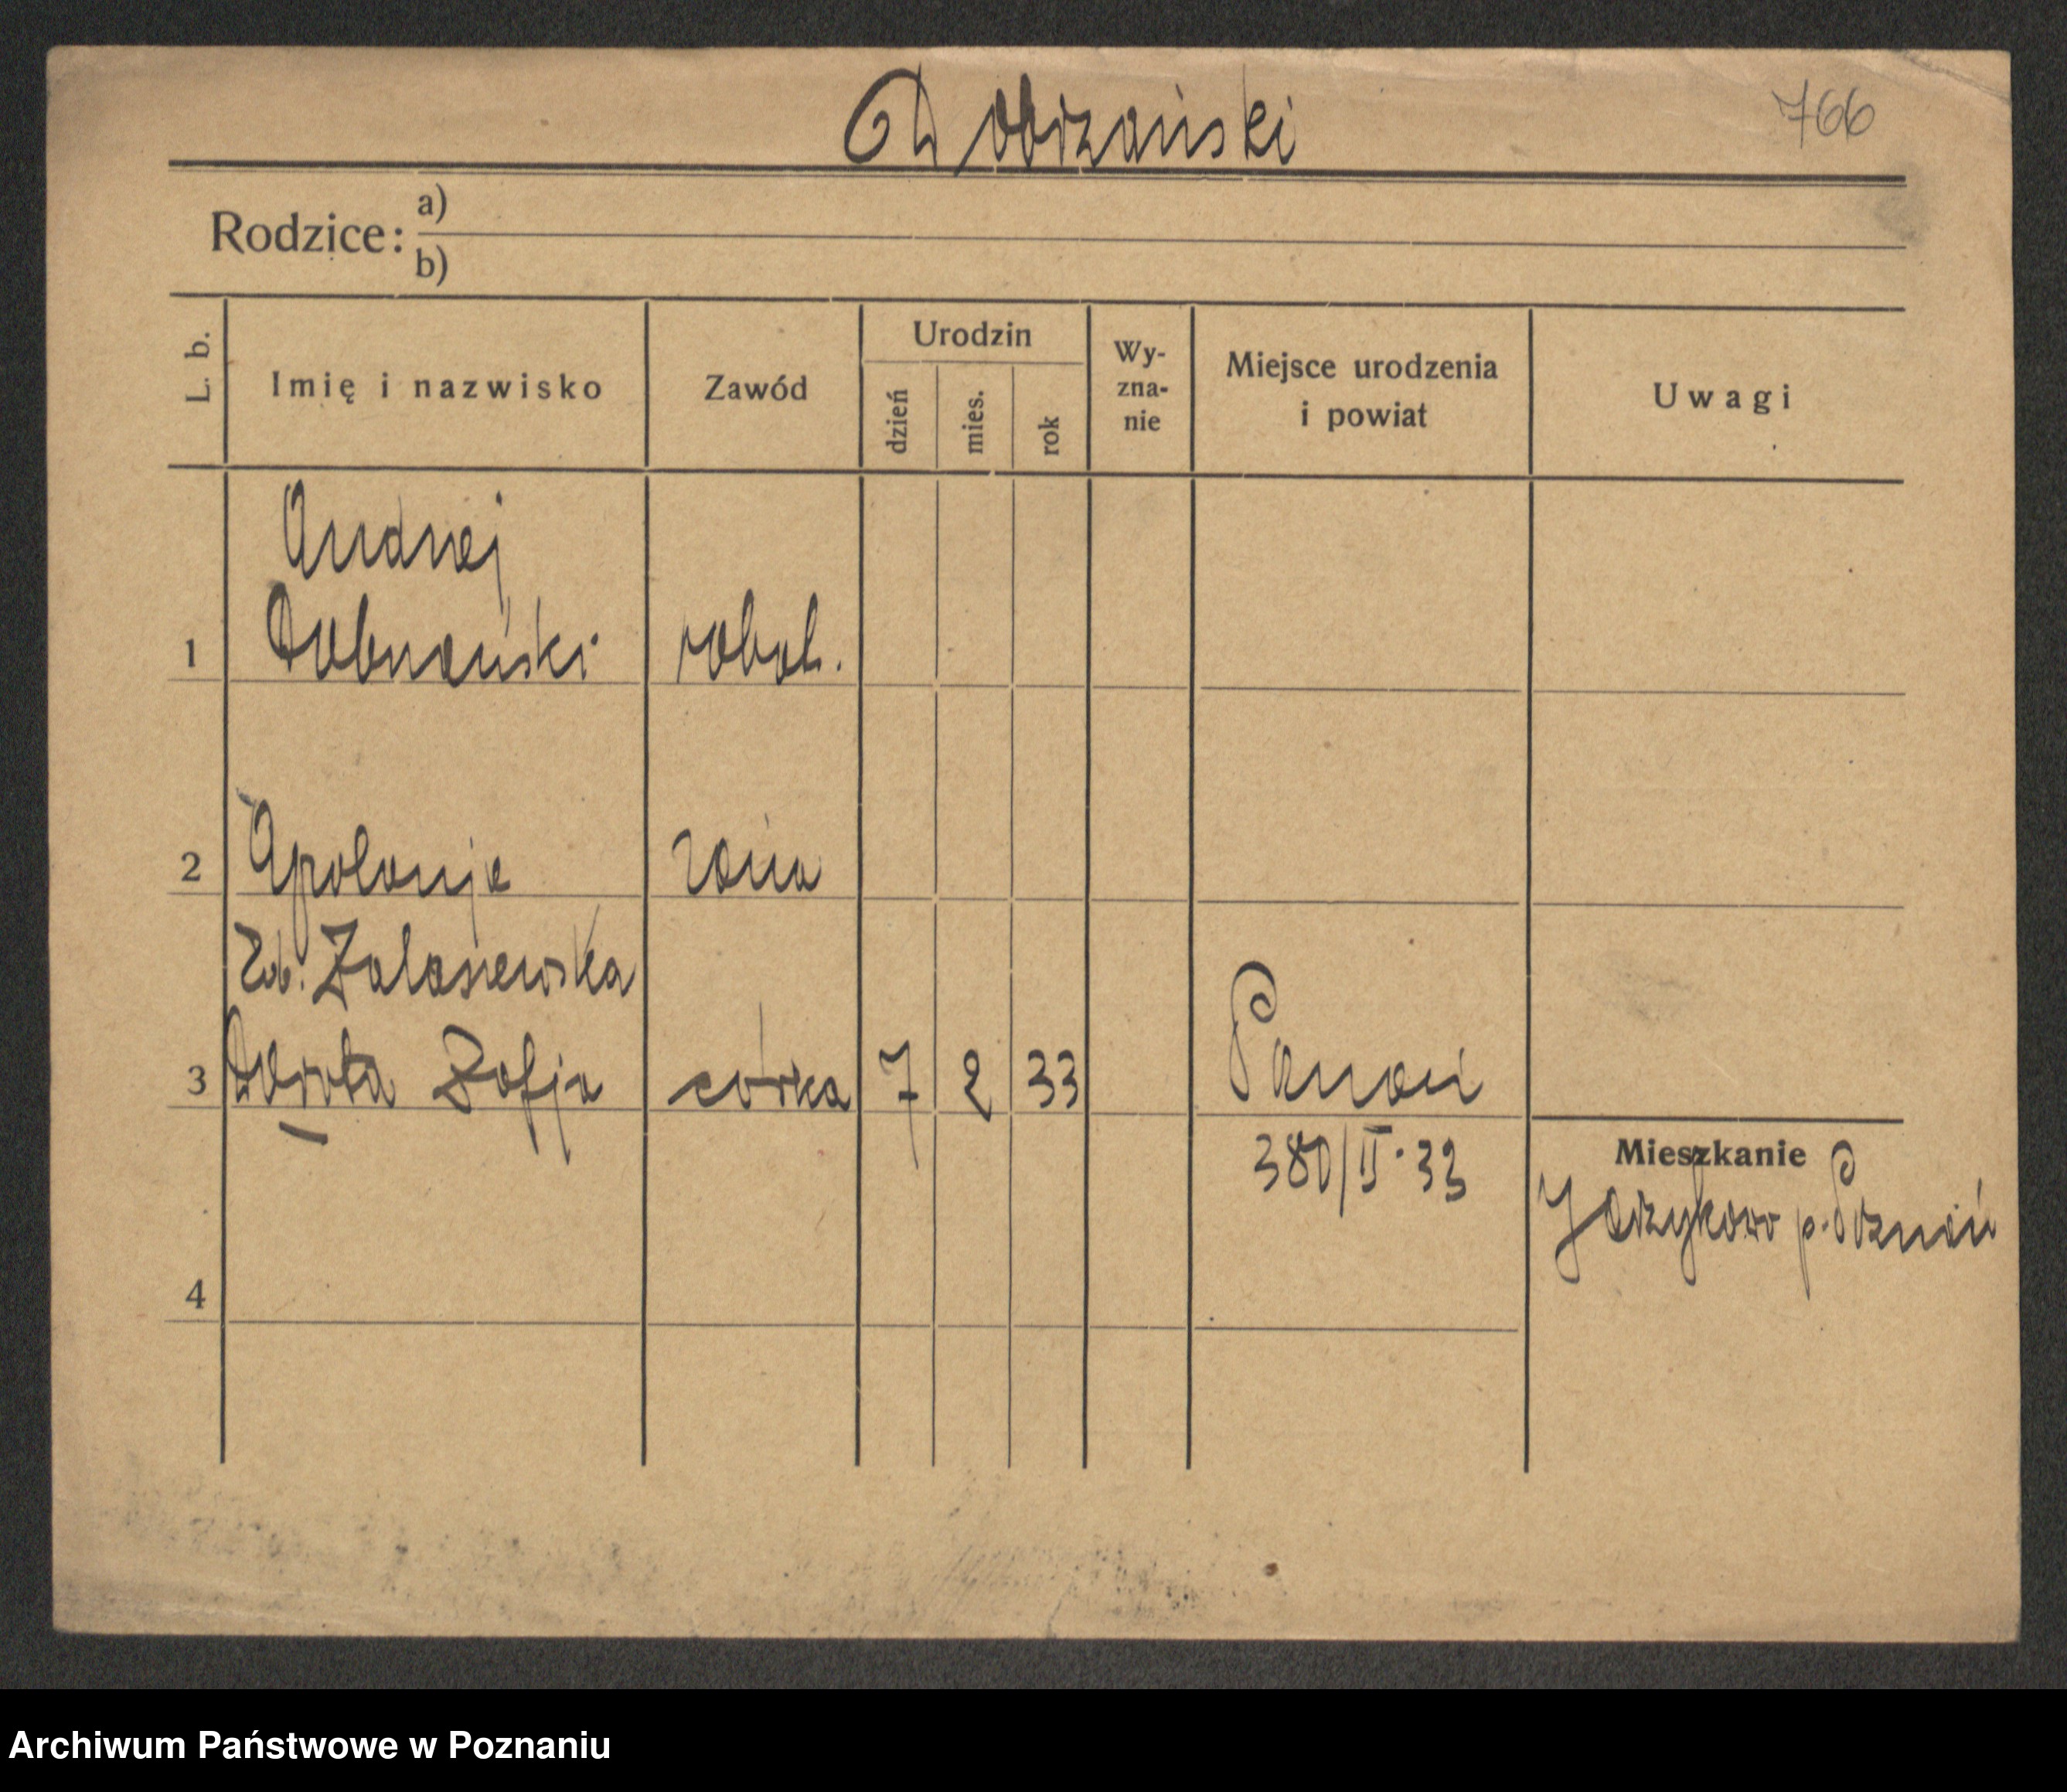 Dobrzański
766
Rodzice: a)
b)
L. b.
Imię i nazwisko
Zawód
Urodzin
dzień
mies.
rok
Wy-
zna-
nie
Miejsce urodzenia
i powiat
Uwagi
Andrzej
1 Dobrzański robot.
2 Apolonja żona
Zalasiewska
3 Dorota Zofja córka 7 2 33 Poznań
380/II·33
Mieszkanie
Jerzykowo p. Poznań
4
Archiwum Państwowe w Poznaniu